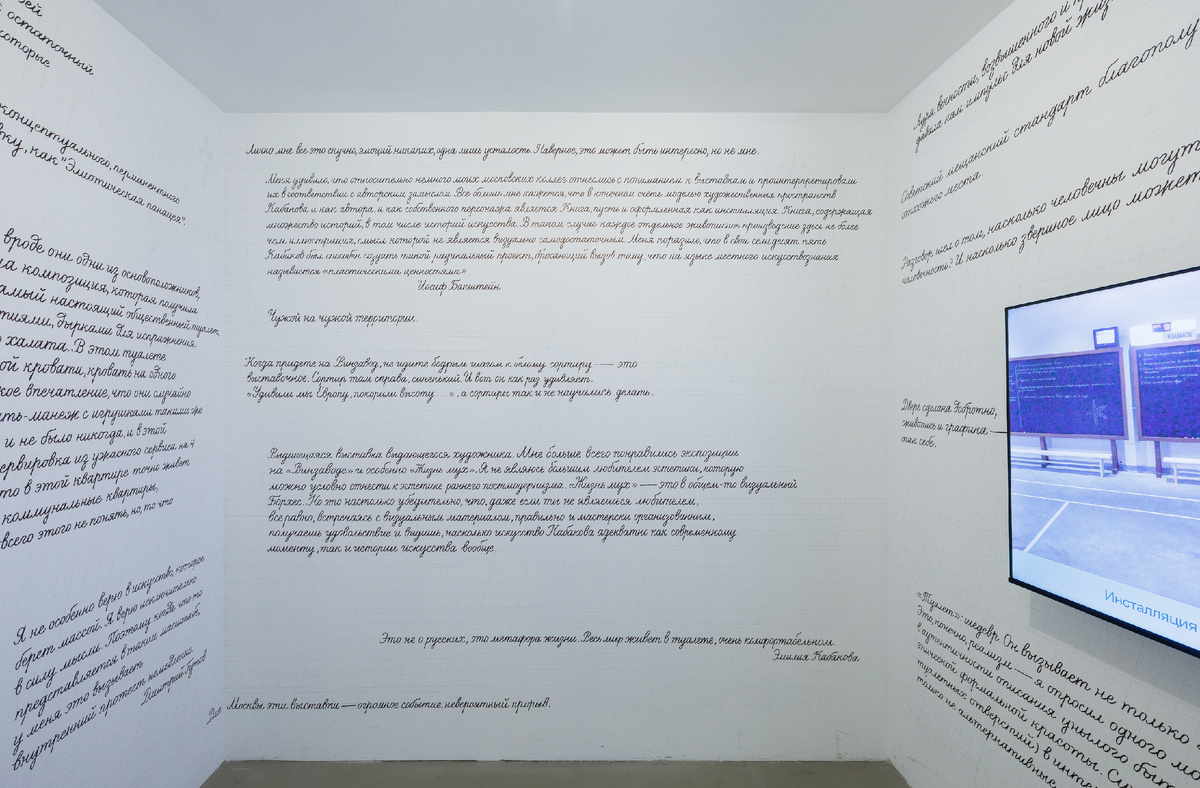 остаточный
которые
концептуального, перманентного
как "Элиотическая панацея".
вроде они одни из основоположников,
композиция, которая получила
самый настоящий общественный туалет,
дырками для испражнения.
халата.. В этом туалете
кровати, кровать на одного
впечатление, что они случайно
манеж с игрушками такими же
и не было никогда, и в этой
сервировка из ужасного сервиза на 4
что в этой квартире точно живет
коммунальные квартиры,
всего этого не понять, но, то что
Я не особенно верю в искусство, которое
берет массой. Я верю исключительно
в силу мысли. Поэтому когда что-то
представляется в таких масштабах,
у меня это вызывает
внутренний протест немедленно.
Дмитрий Гутов
Лично мне все это скучно, эмоций никаких, одна лишь усталость. Наверное, это может быть интересно, но не мне.
Меня удивило, что относительно немного моих московских коллег отнеслись с пониманием к выставкам и проинтерпретировали
их в соответствии с авторским замыслом. Все больше мне кажется, что в конечном счете моделью художественных пространств
Кабакова и как автора, и как собственного персонажа является Книга, пусть и оформленная как инсталляция. Книга, содержащая
множество историй, в том числе историй искусства. В таком случае каждое отдельное живописное произведение здесь не более
чем иллюстрация, смысл которой не является визуально самодостаточным. Меня поразило, что в свои семьдесят пять
Кабаков был способен создать такой радикальный проект, бросающий вызов тому, что на языке местного искусствознания
называется «пластическими ценностями»
Иосиф Бакштейн.
Чужой на чужой территории.
Когда придете на Винзавод, не идите бодрым шагом к белому сортиру —— это
выставочное. Сортир там справа, синенький. И вот он как раз удивляет.
«Удивили мы Европу, покорили высоту ...», а сортиры так и не научились делать.
Выдающаяся выставка выдающегося художника. Мне больше всего понравились экспозиции
на «Винзаводе» и особенно «Жизнь мух». Я не являюсь большим любителем эстетики, которую
можно условно отнести к эстетике раннего постмодернизма. «Жизнь мух» — это в общем-то визуальный
Борхес. Но это настолько убедительно, что, даже если ты не являешься любителем,
все равно, встречаясь с визуальным материалом, правильно и мастерски организованным,
получаешь удовольствие и видишь, насколько искусство Кабакова адекватно как современному
моменту, так и истории искусства вообще.
Это не о русских, это метафора жизни. Весь мир живет в туалете, очень комфортабельном.
Эмилия Кабакова
Для Москвы эти выставки — огромное событие, невероятный прорыв.
Аура вечности, возвышенного и
давала нам импульс для новой
Советский мещанский стандарт благополу
отхожего места.
Разговор шел о том, насколько человечны могут
человечность? И насколько звериное лицо может
Дверь сделана добротно,
живопись и графика —
так себе.
Инсталляция
«Туалет»: шедевр. Он вызывает не только
Это, конечно, реализм — я опросил одного
в аутентичности описания унылого
эпической формальной красоты.
туалетных отверстий) в
только не альтернативные